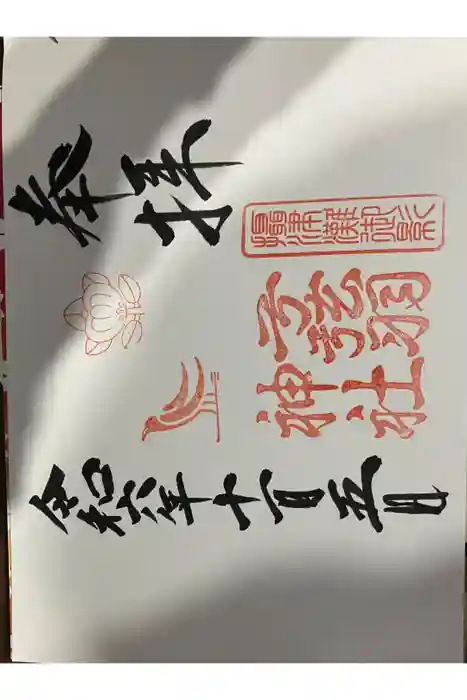 奉拝
弓弦羽
神社
令和六年十一月五日